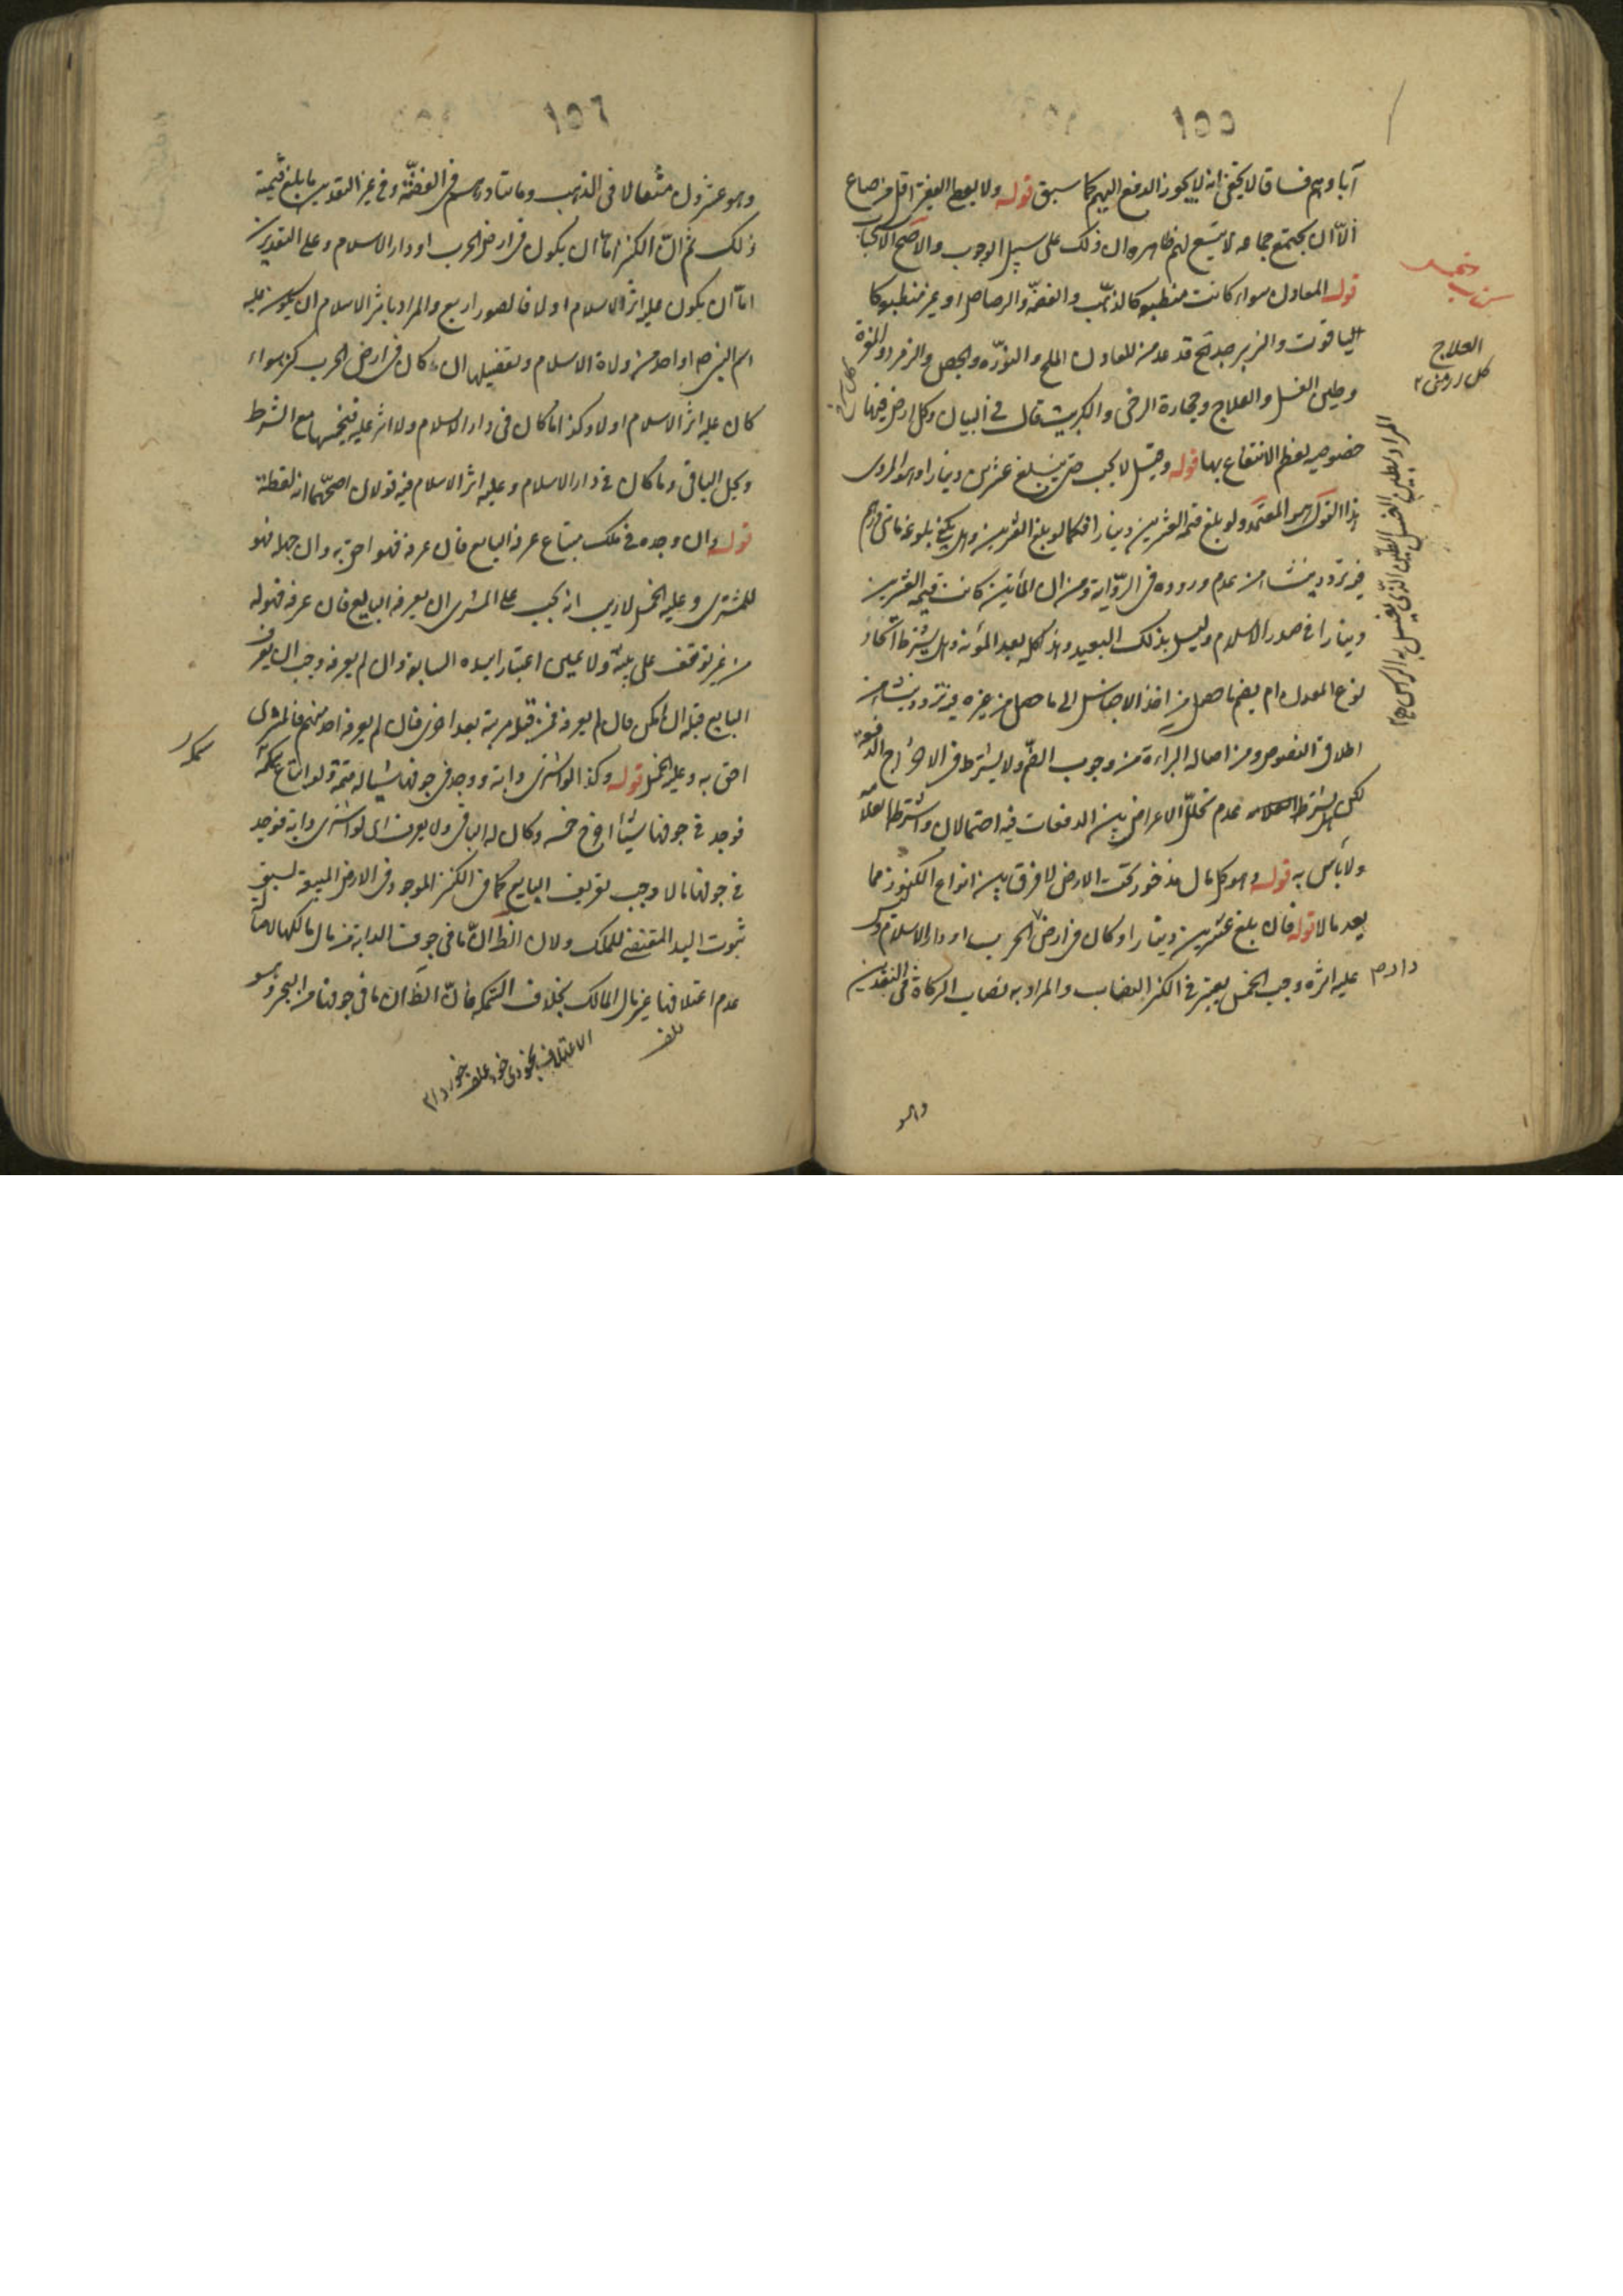 ١٥٥
آباؤهم فساقا لا يخفى انه لا يجوز الدفع اليهم كما سبق قوله ولا يعطى الفقير اقل من صاع
الّا ان يجتمع جماعة لا يتسع لهم ظاهره ان ذلك على سبيل الوجوب والاصح الاستحباب
قوله المعادن سواء كانت منطبعة كالذهب والفضّة والرصاص او غير منطبعة كا
الياقوت والزبرجد قد عد من المعادن الملح والنورة والجص والزمرد والمغرة
وطين الغسل والعلاج وحجارة الرحى والكبريت قال في البيان وكل ارض فيها
خصوصية يعظم الانتفاع بها قوله وقيل لا يجب حتى يبلغ عشرين دينارا وهو المروى
هذا القول هو المعتمد ولو بلغ قيمة العشرين دينارا فكما لو بلغ العشرين وهل يكفى بلوغه مائتى درهم
فيه تردد ينشأ من عدم وروده فى الرّواية ومن ان المأتين كانت قيمة العشرين
دينارا في صدر الاسلام وليس بذلك البعيد وهذا كله بعد المؤنة وهل يشترط اتحاد
نوع المعدن ام يضم ما حصل من احد الاجناس الى ما حصل من غيره فيه تردد ينشأ من
اطلاق النصوص ومن اصالة البراءة من وجوب الضّم ولا يشترط فى الاخراج الدفعة
لكن هل يشترط عدم تخلّل الاعراض بين الدفعات فيه احتمالان واشترطه العلّامة
ولا بأس به قوله وهو كل مال مذخور تحت الارض لا فرق بين انواع الكنوز مما
يعد مالا قوله فان بلغ عشرين دينارا وكان فى ارض الحرب او دار الاسلام وليس
عليه اثره وجب الخمس يعتبر في الكنز النصاب والمراد به نصاب الزكاة فى النقدين
وهو
العلاج
كل روغنى ١٢
المراد بطين الغسل الطين الذى يغسل به الراس ١٢
١٥٦
وهو عشرون مثقالا فى الذهب ومائتا درهم فى الفضّة وفي غير النقدين ما بلغ قيمة
ذلك ثم انّ الكنز امّا ان يكون فى ارض الحرب او دار الاسلام وعلى التقديرين
امّا ان يكون عليه اثر الاسلام او لا فالصور اربع والمراد باثر الاسلام ان يكون عليه
اسم النبى ص او احد من ولاة الاسلام وتفصيلها ان ما كان فى ارض الحرب كنز سواء
كان عليه اثر الاسلام او لا وكذا ما كان فى دار الاسلام ولا اثر عليه فيخمسها مع الشرط
ويحل الباقى وما كان فى دار الاسلام وعليه اثر الاسلام فيه قولان اصحّهما انه لقطة
قوله وان وجده في ملك مبتاع عرفه البايع فان عرفه فهو احق به وان جهله فهو
للمشترى وعليه الخمس لا ريب انه يجب على المشترى ان يعرفه البايع فان عرفه فهو له
من غير توقف على بينة ولا يمين اعتبارا بيده السابقة وان لم يعرفه وجب ان يعرف
البايع قبله ان امكن فان لم يعرفه فمن قبله مرتبة بعد اخرى فان لم يعرفه احد منهم فالمشترى
احق به وعليه الخمس قوله وكذا لو اشترى دابة ووجد فى جوفها شيئا له قيمة ولو ابتاع سمكة
فوجد في جوفها شيئا اخرج خمسه وكان له الباقى ولا يعرف اى لو اشترى دابة فوجد
في جوفها مالا وجب تعريف البايع كما فى الكنز الموجود فى الارض المبيعة لسبق
ثبوت اليد المقتضى للملك ولان الظ انّ ما فى جوف الدابة من مال مالكها لاصالة
عدم اعتلافها غير مال المالك بخلاف السمكة فانّ الظ ان ما فى جوفها من البحر وهو